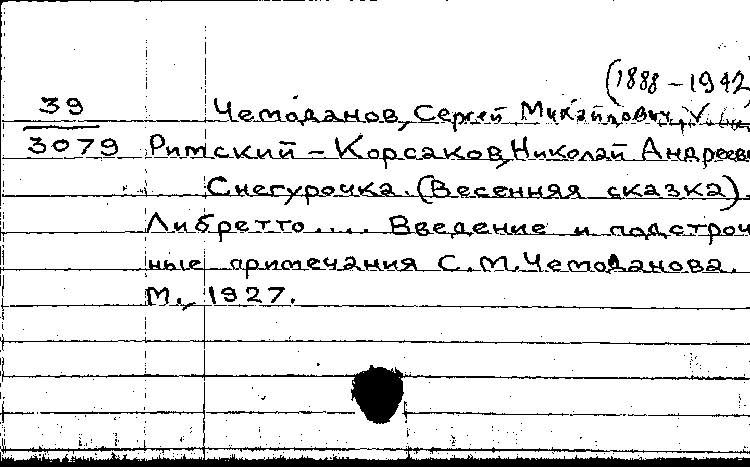 (1888-1942
39 Чемоданов, Сергей Михайлович,
3079 Римский-Корсаков, Николай Андрееви
Снегурочка. (Весенняя сказка).
Либретто.... Введение и подстроч
ные примечания С.М.Чемоданова.
М., 1927.